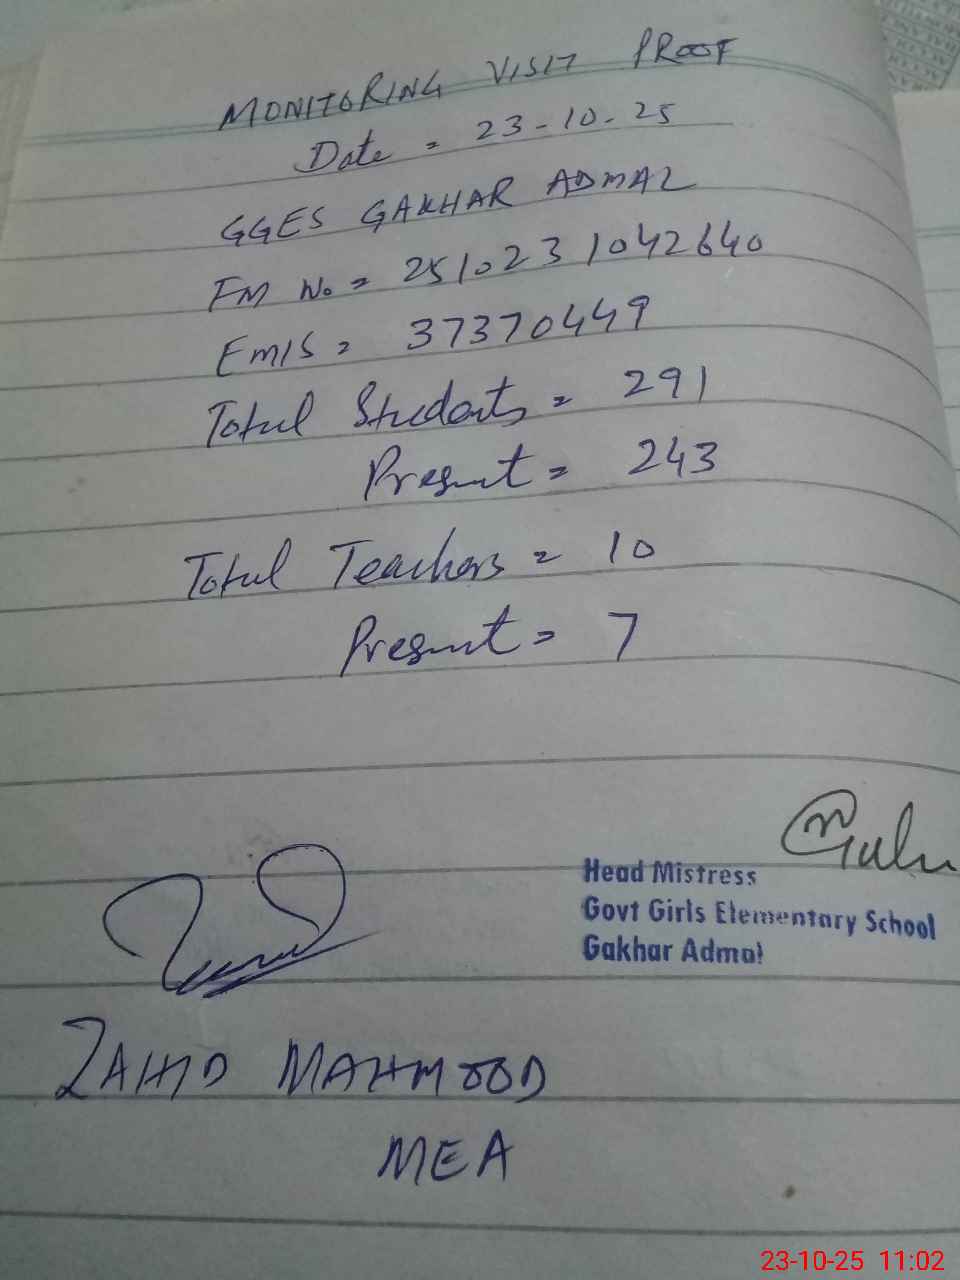 MONITORING VISIT PROOF
Date = 23-10-25
GGES GAKHAR ADMAL
FM No = 251023 1042640
EMIS = 37370449
Total Students = 291
Present = 243
Total Teachers = 10
Present = 7
Head Mistress
Govt Girls Elementary School
Gakhar Admal
ZAHID MAHMOOD
MEA
23-10-25 11:02